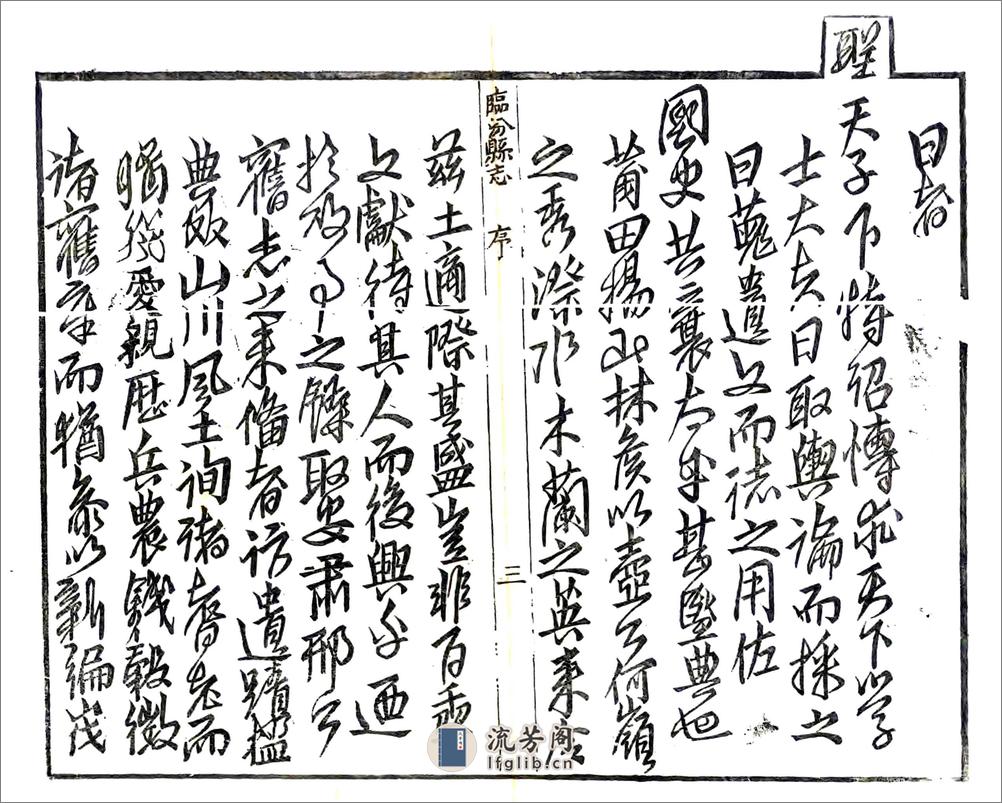 日者
聖
天子下特詔博求天下之學
士大夫日取輿論而採之
曰蒐遺文而誌之用佐
國史共襄太平甚盛典也
莆田揚此林侯以壺公何嶺
之秀際水木蘭之英來
茲土適際其盛豈非百
文獻待其人而後興乎迺
於政事之餘取蕭邢
舊志之未備者訪遺蹟
典故山川風土詢諸耆老而
愛親歷兵農錢穀徵
諸舊章而猶參以新編
臨汾縣志 序 三
流芳阁
lfglib.cn